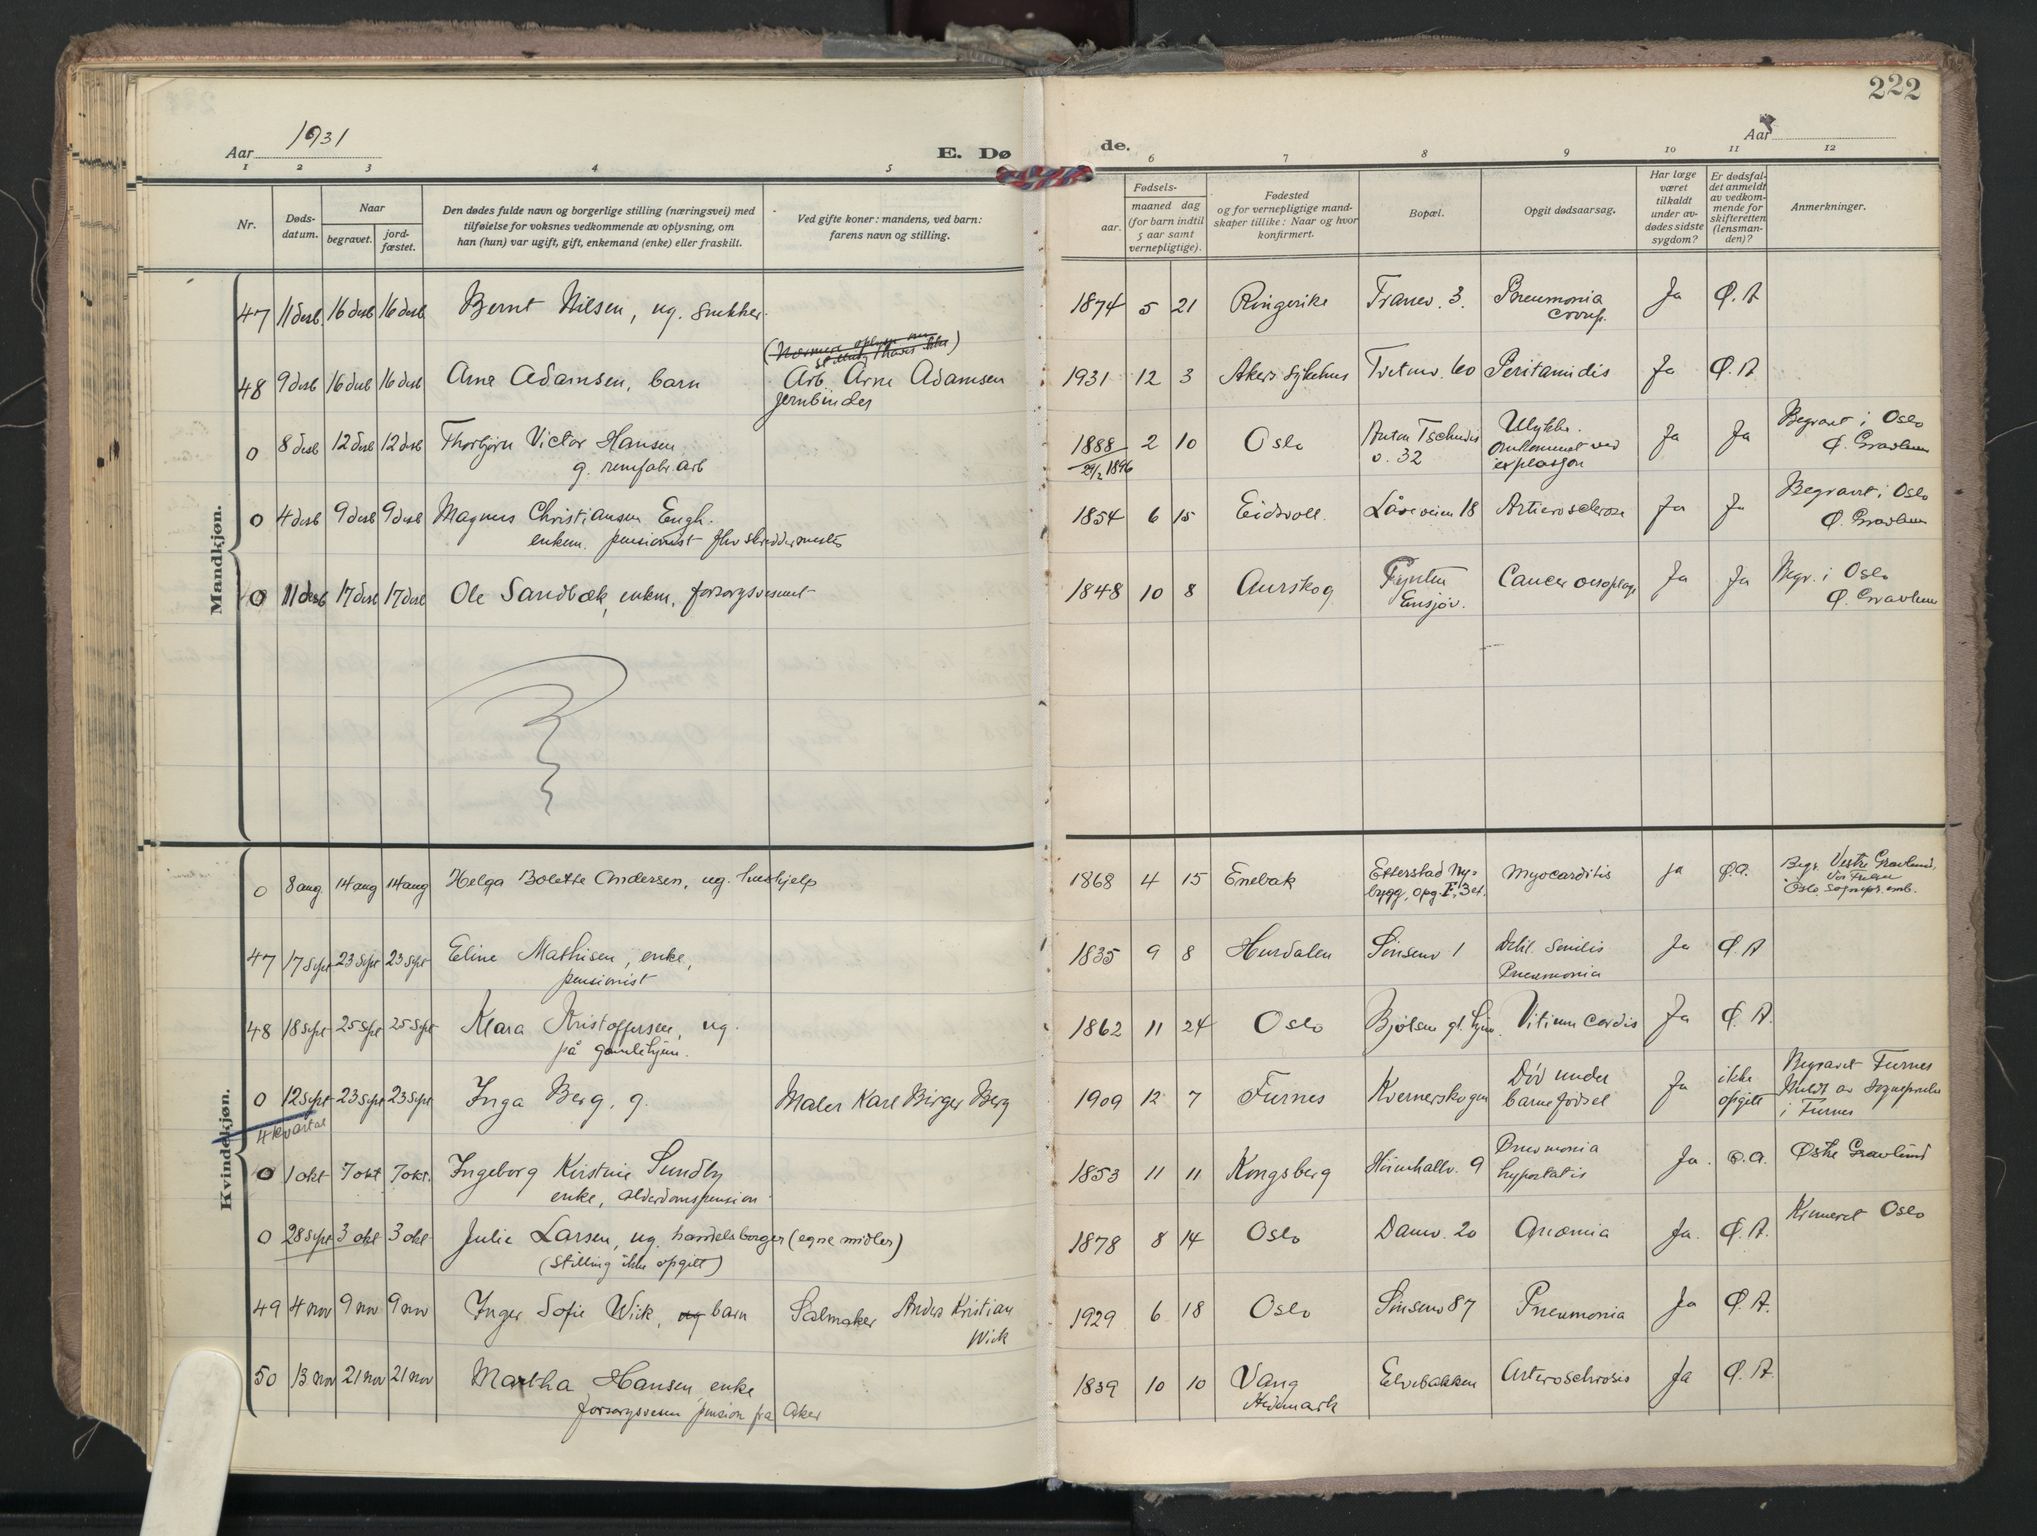 222
Aar 1931
E. Dø
de.
Aar
1 2 3 4 5 6 7 8 9 10 11 12
Nr.
Døds-
datum.
Naar
begravet.
jord-
fæstet.
Den dødes fulde navn og borgerlige stilling (næringsvei) med
tilføielse for voksnes vedkommende av oplysning, om
han (hun) var ugift, gift, enkemand (enke) eller fraskilt.
Ved gifte koner: mandens, ved barn:
farens navn og stilling.
Fødsels-
aar.
maaned dag
(for barn indtil
5 aar samt
vernepligtige).
Fødested
og for vernepligtige mand-
skaper tillike: Naar og hvor
konfirmert.
Bopæl.
Opgit dødsaarsag.
Har læge
været
tilkaldt
under av-
dødes sidste
sygdom?
Er dødsfal-
det anmeldt
av vedkom-
mende for
skifteretten
(lensman-
den)?
Anmerkninger.
Mandkjøn.
47 11 desb 16 desb 16 desb Bernt Nilsen, ug. snekker. 1874 5 21 Ringerike Tranev. 3. Pneumonia Ja Ø. A
croup.
48 9 desb 16 desb 16 desb Arne Adamsen, barn Arb. Arne Adamsen 1931 12 3 Akers sykehus Tvetenv. 60 Peritonidis Ja Ø. A
jernbinder
0 8 desb 12 desb 12 desb Thorbjørn Victor Hansen 1888 2 10 Oslo Anton Tschudis Ulykke. Ja Ja Begravet i Oslo
g. remfabr. arb 29/2 1896 v. 32 omkommet ved Ø. Gravlun
explosjon
0 4 desb 9 desb 9 desb Magnus Christiansen Engh. 1854 6 15 Eidsvoll. Låveveien 18 Artierosclerose Ja Ja Begravet i Oslo
enkem. pensionist fhv skreddermester Ø. Gravlun
0 11 desb 17 desb 17 desb Ole Sandbæk, enkem, forsorgsvesenet 1848 10 8 Aurskog Fynten Cancer oesophag Ja Ja Begr. i Oslo
Ensjøv. Ø. Gravlun
Kvindekjøn.
0 8 aug 14 aug 14 aug Helga Bolette Andersen, ug. hushjelp 1868 4 15 Enebak Etterstad Ny- Myocarditis ja Ø.A. Begr. Vestre Gravlund,
bygg, opg. F, 3 et. Vor Frelser
Oslo, Sognepr. emb.
47 17 sept 23 sept 23 sept Eline Mathisen, enke, 1835 9 8 Hurdalen Sinsenv 1 Debil. Senilis Ja Ø. A
pensionist Pneumonia
48 18 sept 25 sept 25 sept Klara Kristoffersen, ug. 1862 11 24 Oslo Bjølsen gl. hjem Vitium Cordis Ja Ø. A.
på gamlehjem.
0 12 sept 23 sept 23 sept Inga Berg, g. Maler Karl Birger Berg 1909 12 7 Furnes Kvernerskogen Død under Ja ikke Begravet Furnes
4 kvartal barnefødsel opgitt Meldt av Sognepresten
i Furnes
0 1 okt 7 okt 7 okt. Ingeborg Kirstine Sundby 1853 11 11 Kongsberg Heimhallv. 9 Pneumonia Ja. Ø.A. Østre Gravlund
enke, alderdomspension hypostatis
0 28 sept 3 okt 3 okt Julie Larsen, ug. handelsborger (egne midler) 1878 8 14 Oslo Damv. 20 Anæmia Ja. Ø. A. Kremeret Oslo
(stilling ikke opgitt)
49 4 nov 9 nov 9 nov Inger Sofie Wiik, ug barn Salmaker Anders Kristian 1929 6 18 Oslo Sinsenv 87 Pneumonia Ja Ø. A.
Wiik
50 13 nov 21 nov 21 nov Martha Hansen, enke 1839 10 10 Vang Elvebakken Arteroschrosis Ja Ø. A.
forsorgsvesen pension fra Aker Hedmark